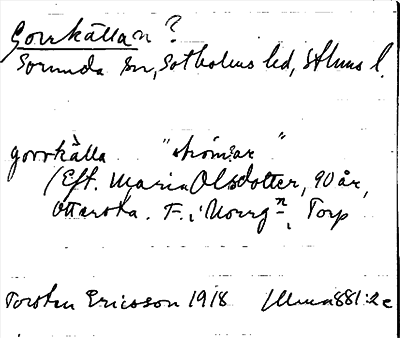 Gorrkällan?
Sorunda sn, Sotholms hd, Sthlms l.
gorrkälla "strömar"
(Eft. Maria Olsdotter, 90 år,
Ottersta. F. i Norrgn, Torp
Torsten Ericsson 1918 Ulma 881:2c